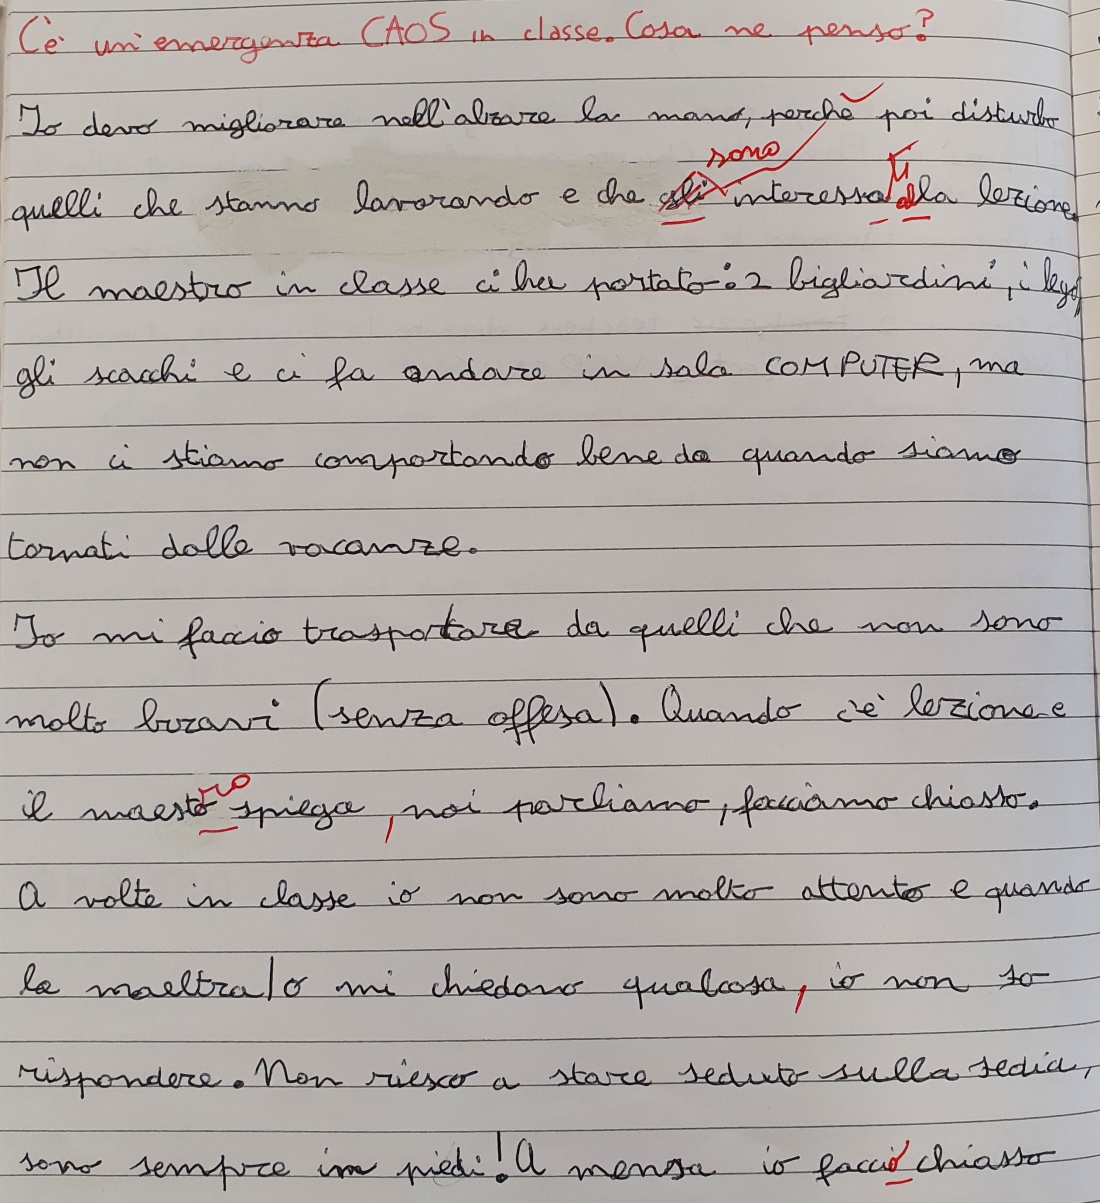 C'è un'emergenza CAOS in classe. Cosa ne penso?
Io devo migliorare nell'alzare la mano, perchè poi disturbo
sono
ti
quelli che stanno lavorando e che gli interessa alla lezione.
Il maestro in classe ci ha portato: 2 bigliardini, i lego,
gli scacchi e ci fa andare in sala COMPUTER, ma
non ci stiamo comportando bene da quando siamo
tornati dalle vacanze.
Io mi faccio trasportare da quelli che non sono
molto bravi (senza offesa). Quando c'è lezione e
ro
il maesto spiega, noi parliamo, facciamo chiasso.
A volte in classe io non sono molto attento e quando
la maeltra/o mi chiedono qualcosa, io non so
rispondere. Non riesco a stare seduto sulla sedia,
sono sempre in piedi! A mensa io faccio chiasso